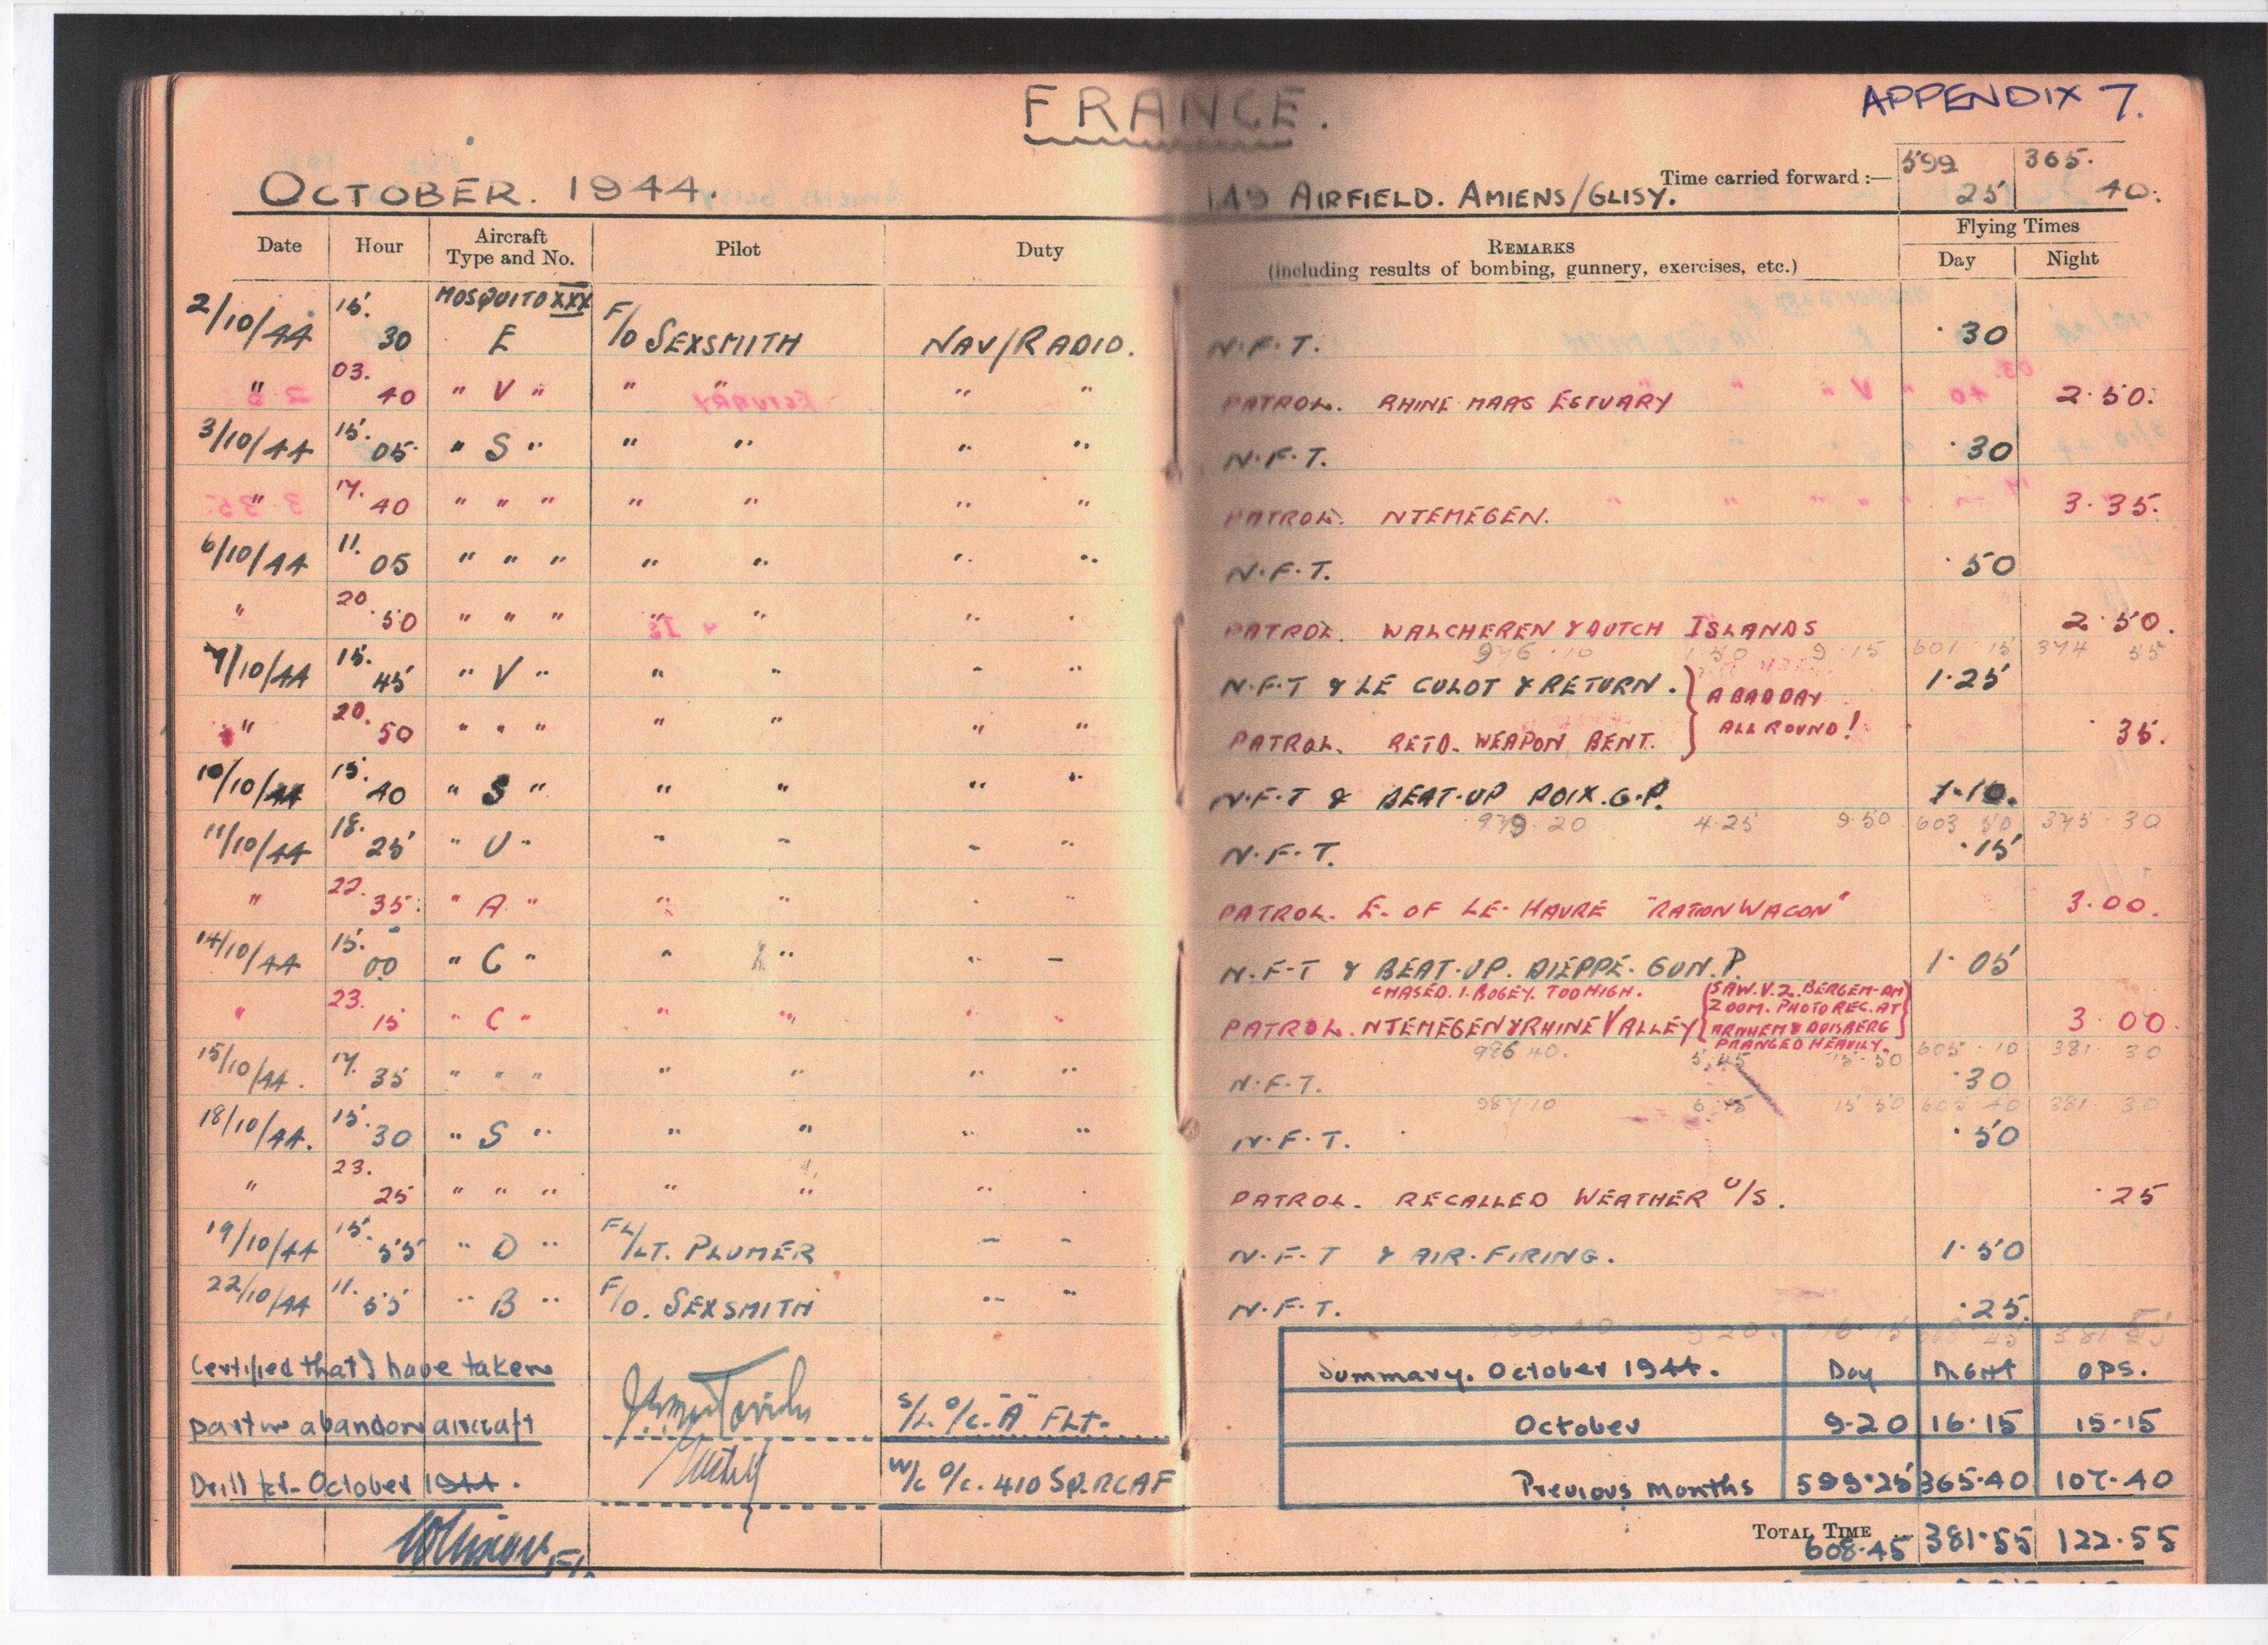 FRANCE.
APPENDIX 7.
OCTOBER. 1944.
149 AIRFIELD. AMIENS/GLISY. Time carried forward :— 599 25 365. 40.
Date Hour Aircraft Type and No. Pilot Duty REMARKS (including results of bombing, gunnery, exercises, etc.) Flying Times Day Night
2/10/44 15.30 MOSQUITO XXX E F/O SEXSMITH NAV/RADIO. N.F.T. .30
" 03.40 " V " " " " " PATROL. RHINE MAAS ESTUARY 2.50.
3/10/44 15.05 " S " " " " " N.F.T. .30
" 17.40 " " " " " " " PATROL. NIJMEGEN. 3.35.
6/10/44 11.05 " " " " " " " N.F.T. .50
" 20.50 " " " " " " " PATROL. WALCHEREN & DUTCH ISLANDS 2.50.
976.10 1.50 9.15 601 15 374 55
7/10/44 15.45 " V " " " " " N.F.T & LE CULOT & RETURN. 1.25
" 20.50 " " " " " " " PATROL. RETD. WEAPON BENT. .35.
A BAD DAY
ALL ROUND!
10/10/44 15.40 " S " " " " " N.F.T & BEAT-UP POIX.G.P. 1.10.
979.20 4.25 9.50 603 50 375 30
11/10/44 18.25 " U " " " " " N.F.T. .15
" 22.35 " A " " " " " PATROL. E. OF LE-HAVRE "RATION WAGON" 3.00.
14/10/44 15.00 " C " " " " – N.F.T & BEAT-UP. DIEPPE. GUN.P. 1.05
CHASED. 1. BOGEY. TOO HIGH.
" 23.15 " C " " " " " PATROL. NIJMEGEN & RHINE VALLEY 3.00.
(SAW. V.2. BERGEM-AM
ZOOM. PHOTO REC. AT
ARNHEM & DUISBERG
PRANGED HEAVILY.
986 40. 5.45 15.50 605.10 381.30
15/10/44. 17.35 " " " " " " " N.F.T. .30
987.10 6.15 15 50 605 40 381 30
18/10/44. 15.30 " S " " " " " N.F.T. .50
" 23.25 " " " " " " " PATROL. RECALLED WEATHER U/S. .25
19/10/44 15.55 " D " FL/LT. PLUMER – " N.F.T & AIR-FIRING. 1.50
22/10/44 11.55 " B " F/O. SEXSMITH " " N.F.T. .25.
Certified that I have taken
part in abandon aircraft
Drill for October 1944.
S/L. O/C. "A" FLT.
W/C O/C. 410 SQ. RCAF
Summary. October 1944. Day Night OPS.
October 9.20 16.15 15.15
Previous Months 599.25 365.40 107.40
TOTAL TIME 608.45 381.55 122.55